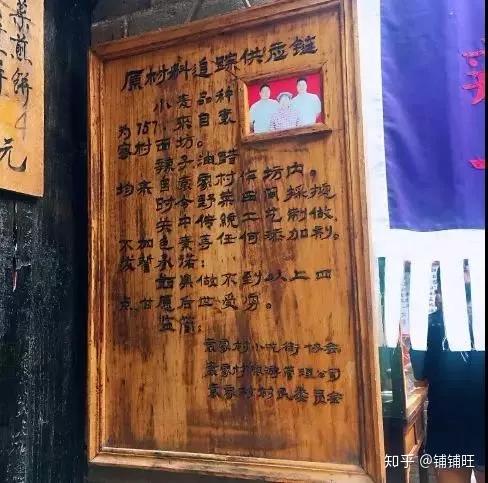 菜煎餅4元
原材料追踪供应链
小麦品种
为757,来自袁
家村面坊。
辣子油醋
均来自袁家村作坊内。
时令野菜田间採摘
传统工艺制做,
不加色素任何添加剂。
发誓承诺:
如果做不到以上四
点甘愿后世受穷。
袁家村小吃街协会
袁家村旅游管理公司
袁家村村民委员会
知乎 @铺铺旺